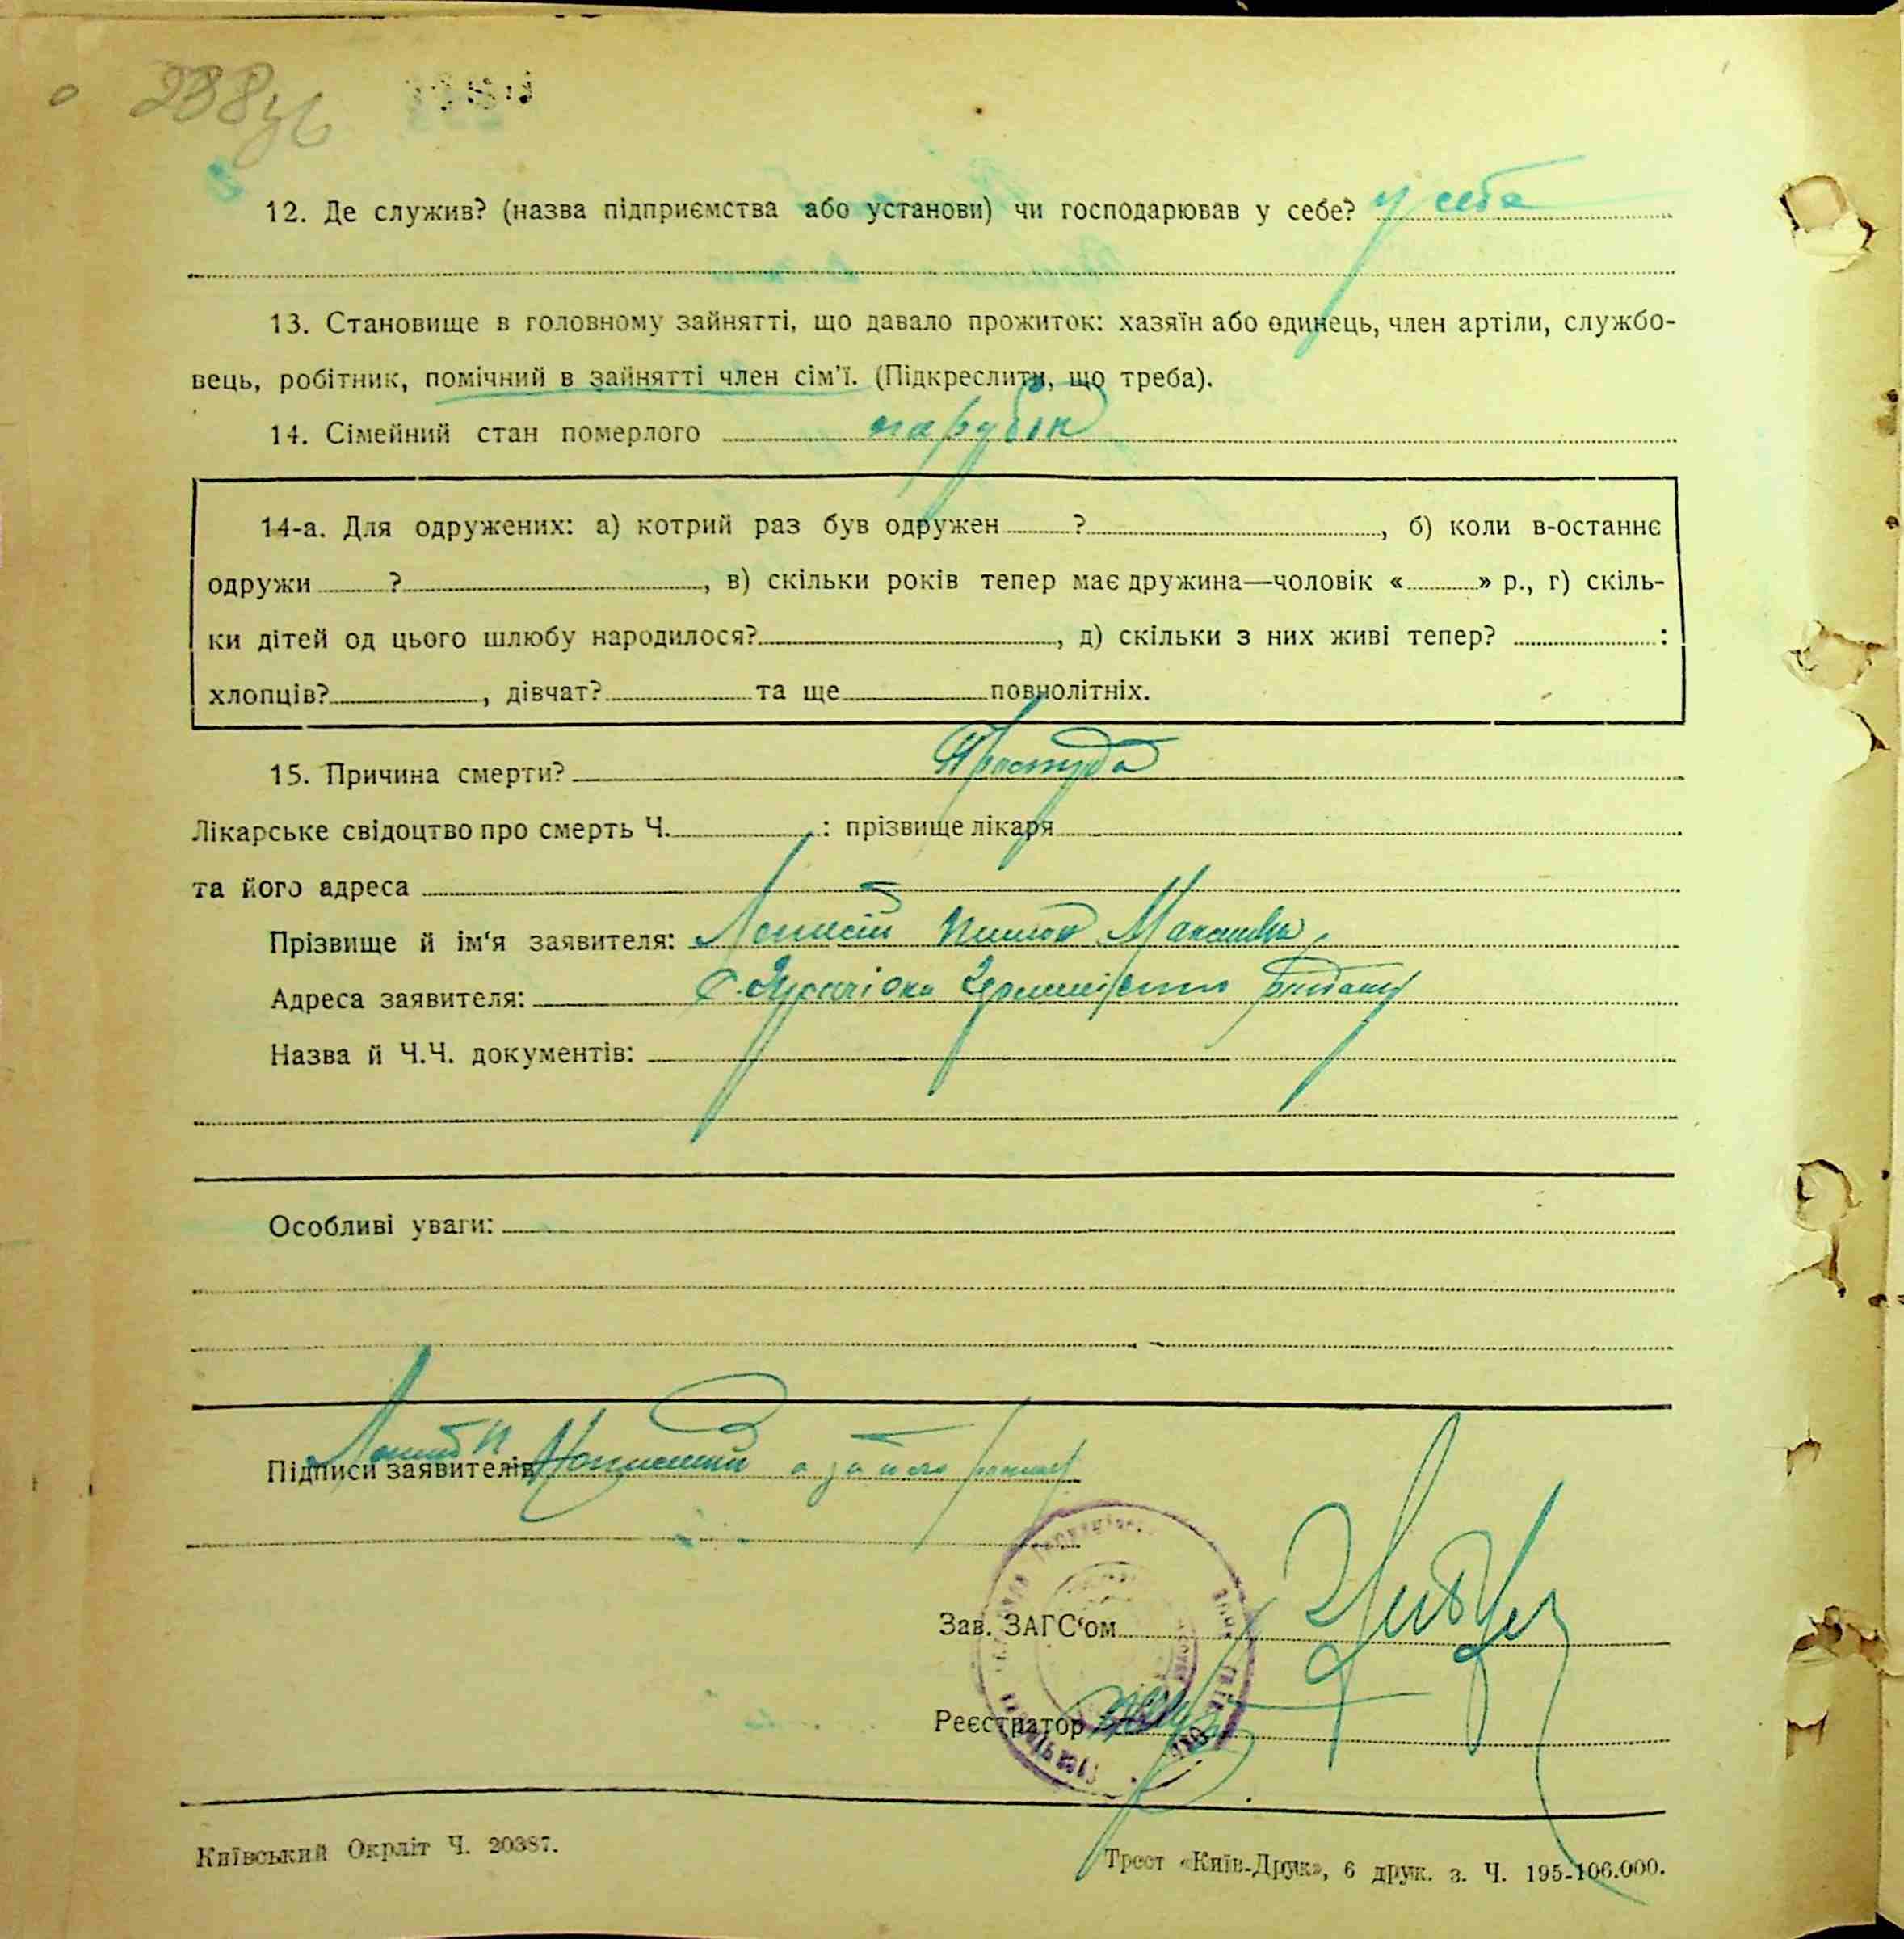 238
12. Де служив? (назва підприємства або установи) чи господарював у себе? у себе
13. Становище в головному зайнятті, що давало прожиток: хазяїн або одинець, член артіли, службо-
вець, робітник, помічний в зайнятті член сім'ї. (Підкреслити, що треба).
14. Сімейний стан померлого парубок
14-а. Для одружених: а) котрий раз був одружен ?, б) коли в-останнє
одружи ?, в) скільки років тепер має дружина—чоловік « » р., г) скіль-
ки дітей од цього шлюбу народилося?, д) скільки з них живі тепер? :
хлопців?, дівчат? та ще повнолітніх.
15. Причина смерти? Простуда
Лікарське свідоцтво про смерть Ч. : прізвище лікаря
та його адреса
Прізвище й ім'я заявителя: Пилип
Адреса заявителя: с.
Назва й Ч.Ч. документів:
Особливі уваги:
Підписи заявителів а за його
Зав. ЗАГС'ом
Реєстратор
Київський Окрліт Ч. 20387.
Трест «Київ-Друк», 6 друк. з. Ч. 195-106.000.